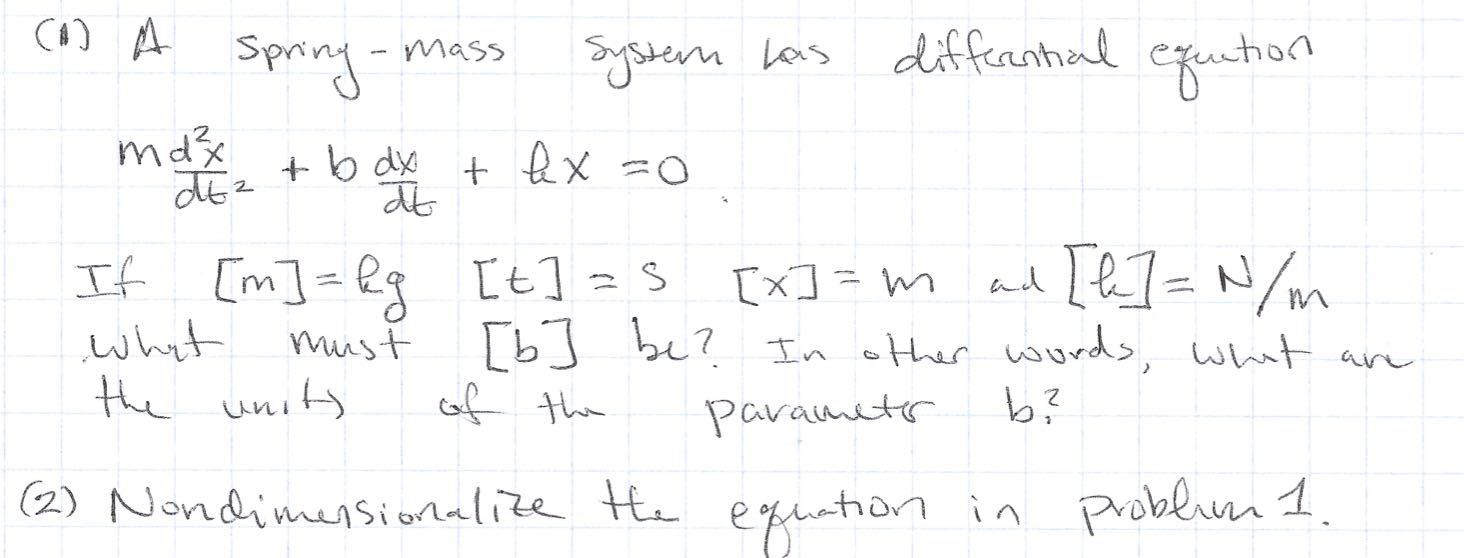 (1) A spring-mass system has differential equation
m d²x/dt² + b dx/dt + kx = 0
If [m] = kg [t] = s [x] = m and [k] = N/m
what must [b] be? In other words, what are
the units of the parameter b?
(2) Nondimensionalize the equation in problem 1.